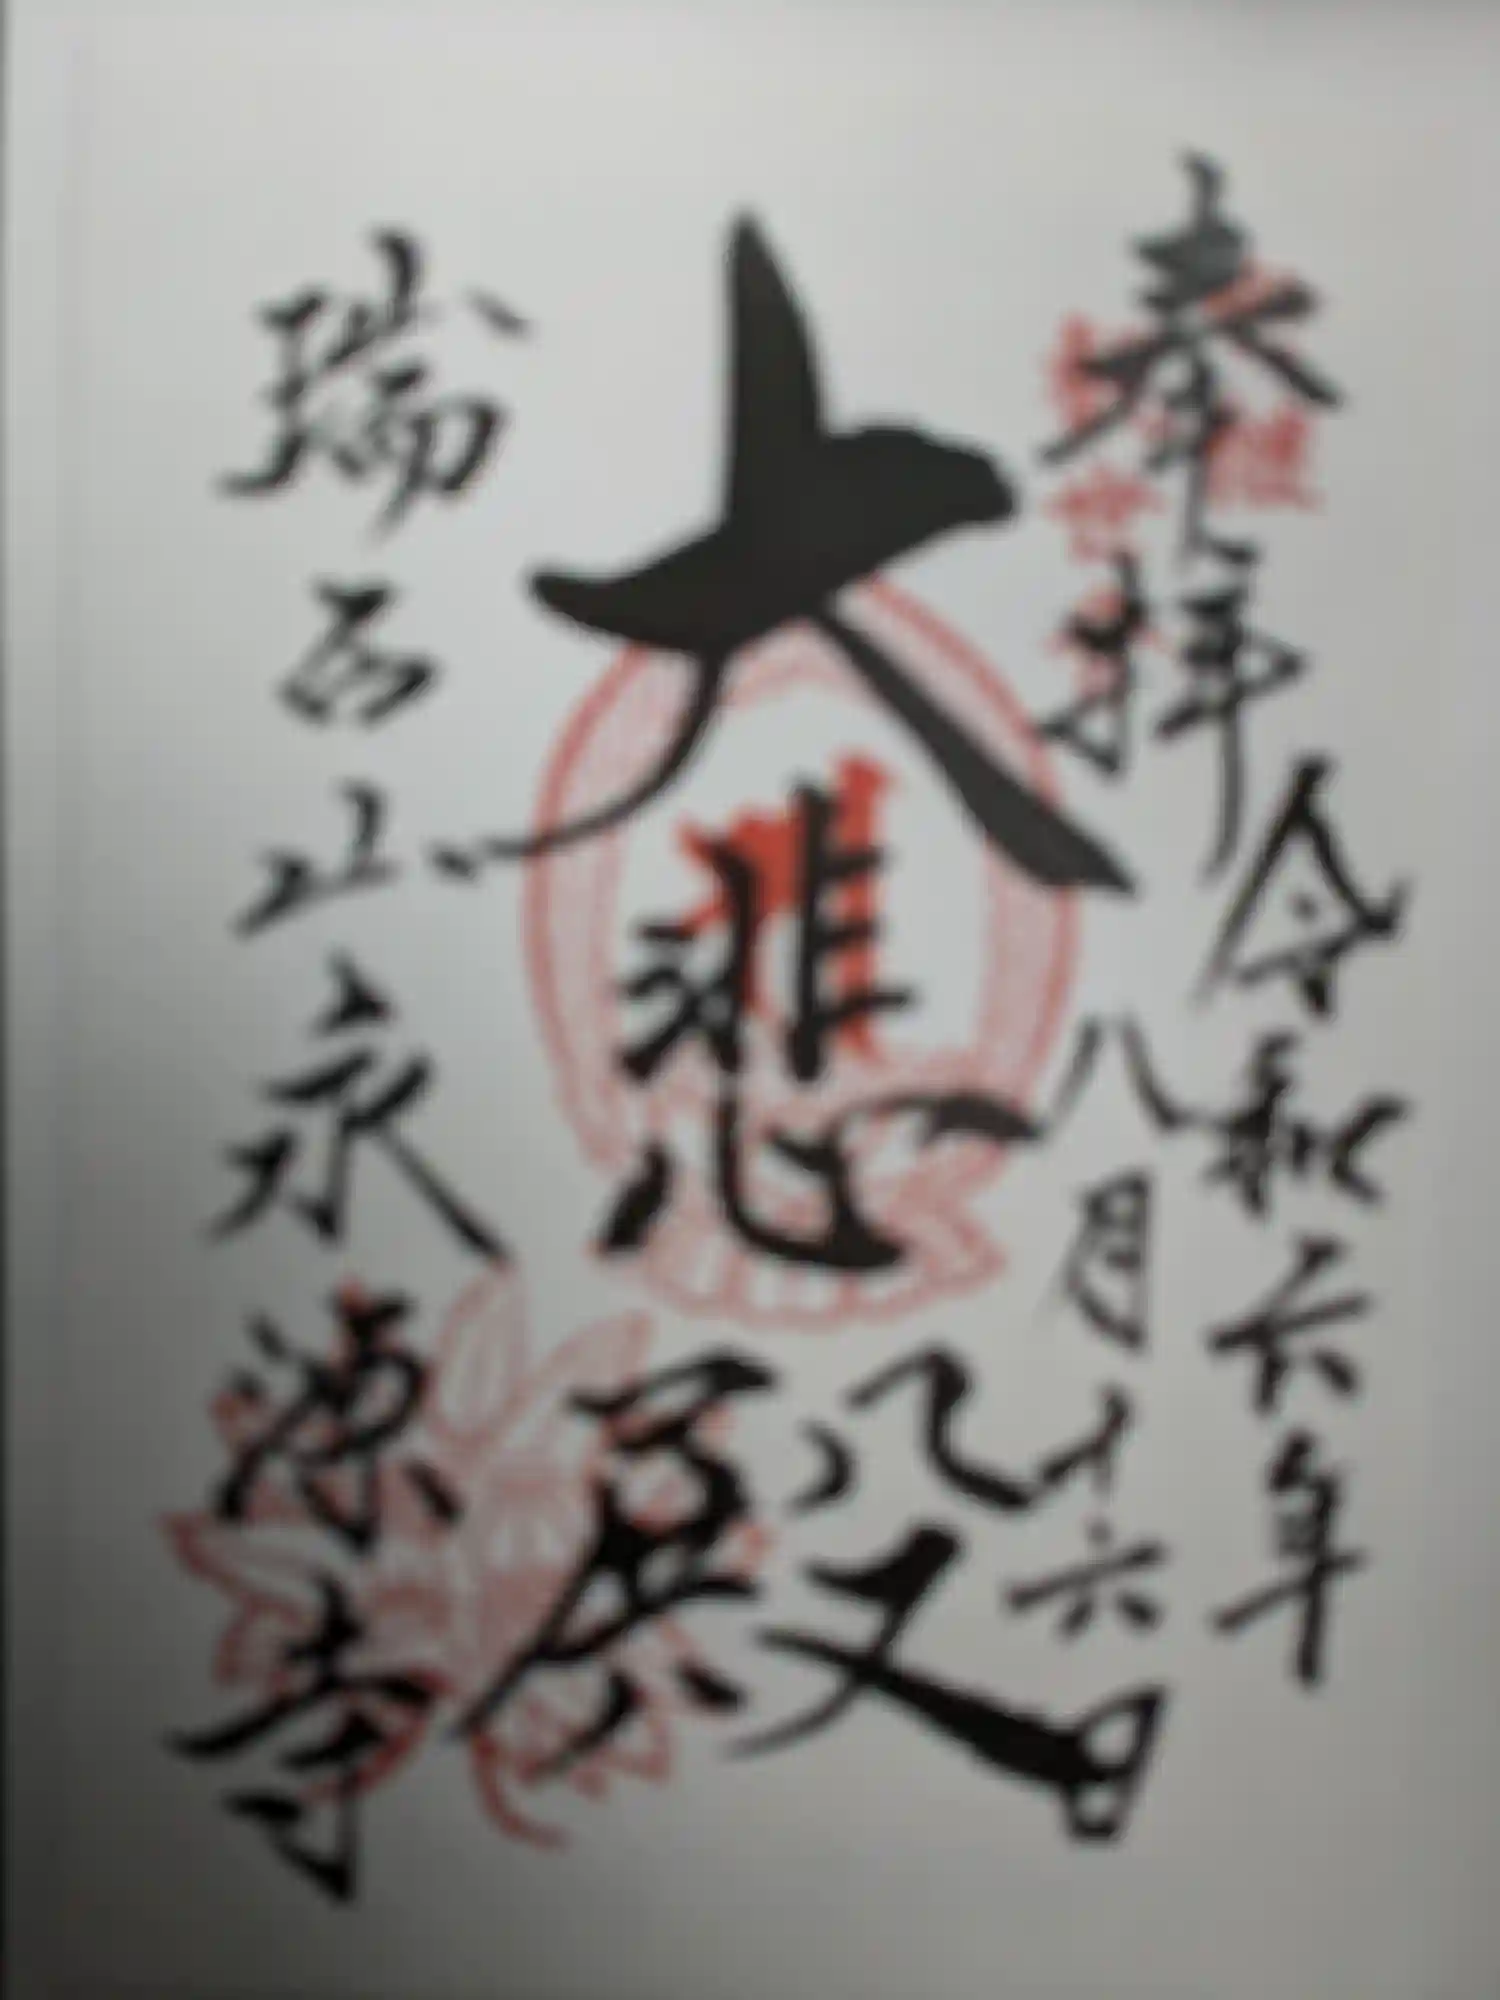 奉拝
令和六年
八月十六日
大悲殿
瑞石山永源寺